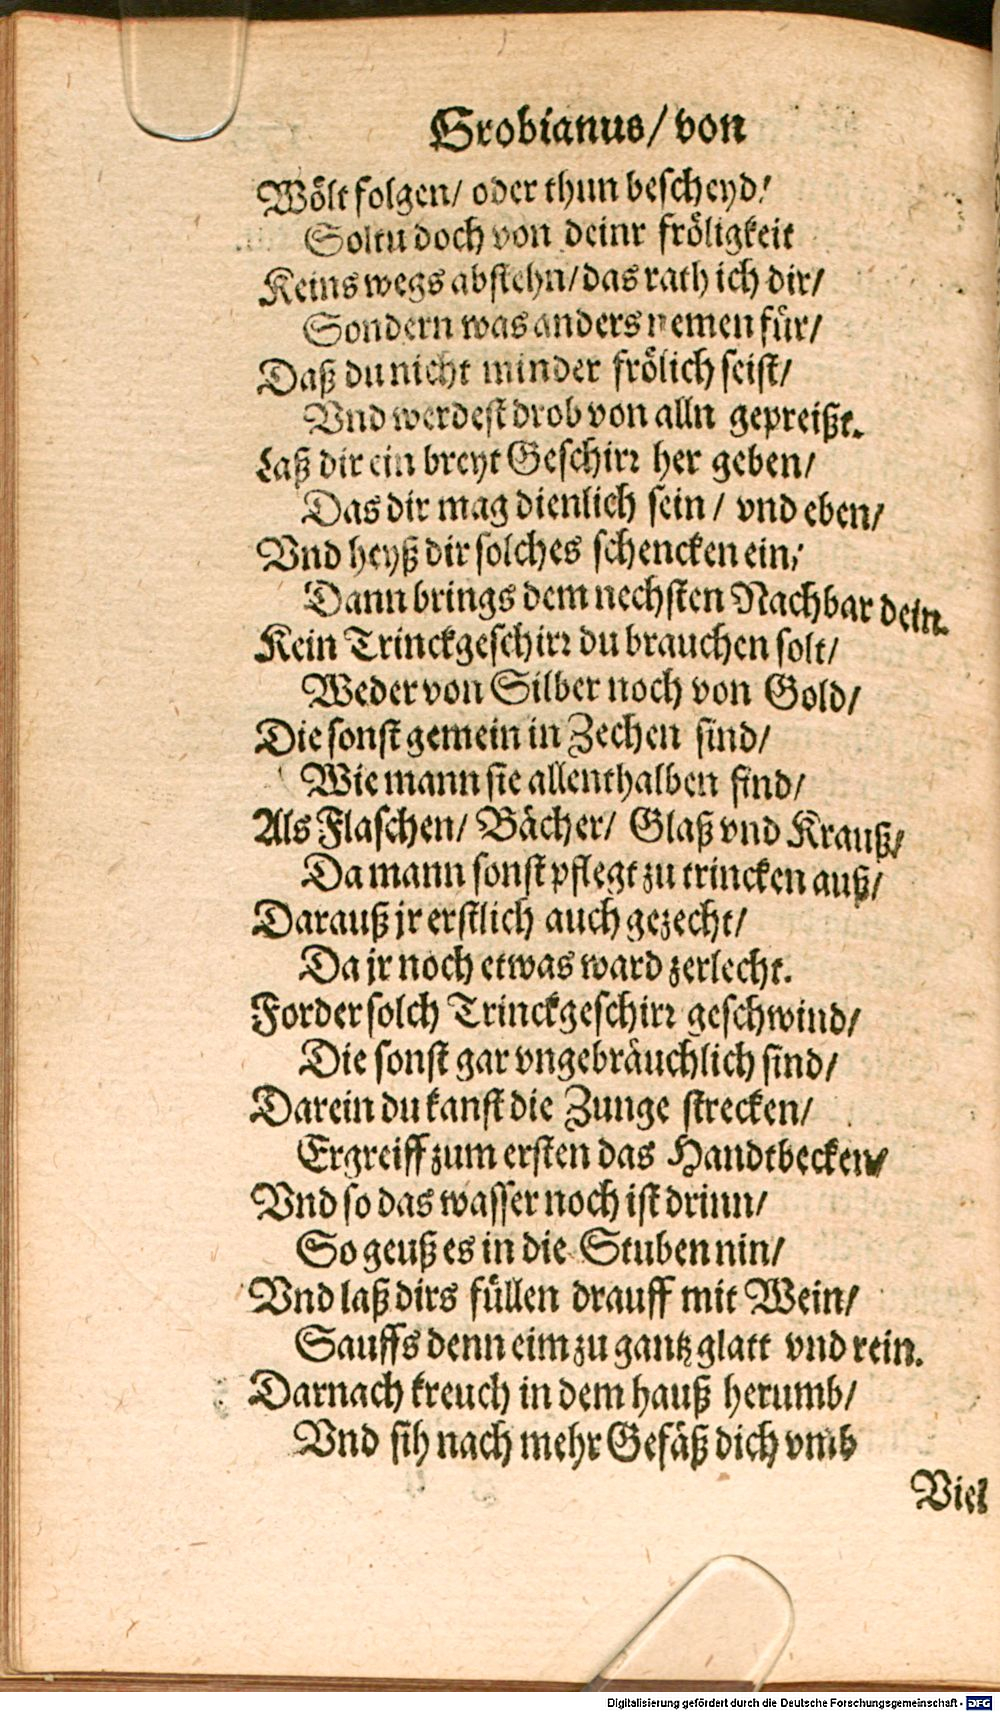 Grobianus/ von
Wölt folgen/ oder thun bescheyd/
Soltu doch von deinr fröligkeit
Keins wegs abstehn/ das rath ich dir/
Sondern was anders nemen für/
Daß du nicht minder frölich seist/
Vnd werdest drob von alln gepreißt.
Laß dir ein breyt Geschirr her geben/
Das dir mag dienlich sein/ vnd eben/
Vnd heyß dir solches schencken ein/
Dann brings dem nechsten Nachbar dein.
Kein Trinckgeschirr du brauchen solt/
Weder von Silber noch von Gold/
Die sonst gemein in Zechen sind/
Wie mann sie allenthalben find/
Als Flaschen/ Bächer/ Glaß vnd Krauß/
Da mann sonst pflegt zu trincken auß/
Darauß jr erstlich auch gezecht/
Da jr noch etwas ward zerlecht.
Forder solch Trinckgeschirr geschwind/
Die sonst gar vngebräuchlich sind/
Darein du kanst die Zunge strecken/
Ergreiff zum ersten das Handtbecken/
Vnd so das wasser noch ist drinn/
So geuß es in die Stuben nin/
Vnd laß dirs füllen drauff mit Wein/
Sauffs denn eim zu gantz glatt vnd rein.
Darnach kreuch in dem hauß herumb/
Vnd sih nach mehr Gefäß dich vmb
Viel
Digitalisierung gefördert durch die Deutsche Forschungsgemeinschaft - DFG